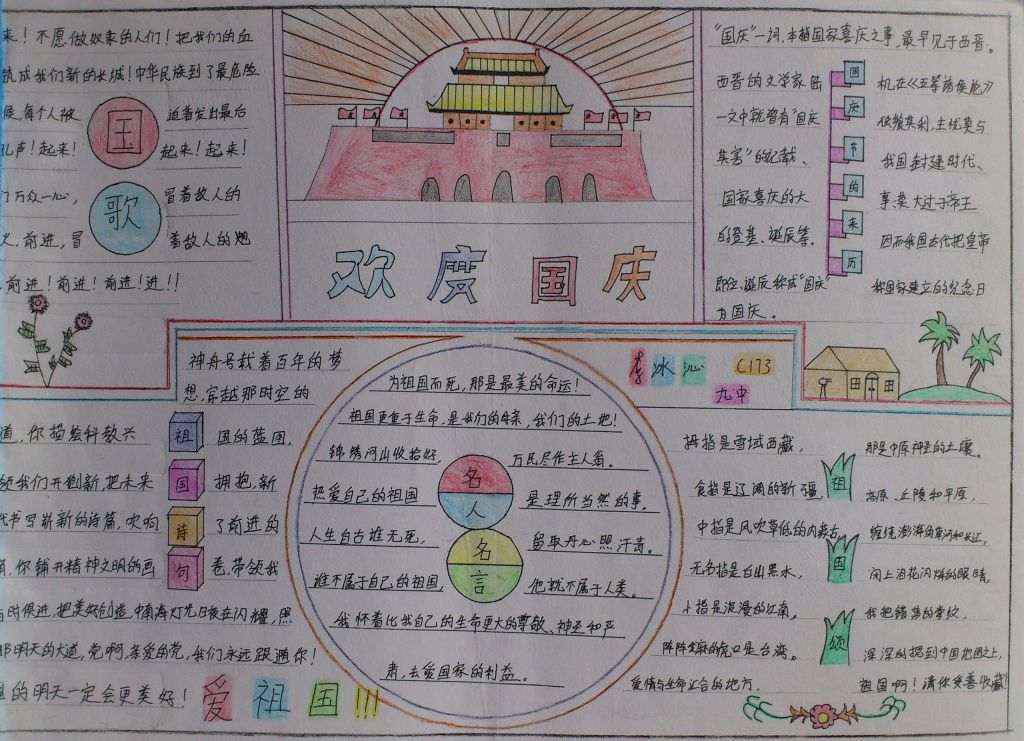 来！不愿做奴隶的人们！把我们的血
筑成我们新的长城！中华民族到了最危险
候，每个人被 迫着发出最后
吼声！起来！ 起来！起来！
国
歌
们万众一心， 冒着敌人的
火，前进，冒 着敌人的炮
前进！前进！前进！进！！
欢度国庆
“国庆”一词，本指国家喜庆之事，最早见于西晋。
西晋的文学家陆 机在《五等诸侯论》
一文中就曾有“国庆
我国封建时代、
国家喜庆的大 事，莫大过于帝王
的登基、诞辰等。 因而我国古代把皇帝
即位、诞辰称成“国庆”
国家建立的纪念日
为国庆。
国庆节的来历
李冰沁 C173
九中
神舟号载着百年的梦
想，穿越那时空的
道，你描绘科教兴 国的蓝图，
我们开创新，把未来 拥抱，新
代书写崭新的诗篇，吹响 了前进的
你铺开精神文明的画 卷，带领我
祖国诗句
时俱进，把美好创造，中南海灯光日夜在闪耀，照
明天的大道，党啊，亲爱的党，我们永远跟随你！
的明天一定会更美好！
爱祖国!!!
为祖国而死，那是最美的命运！
祖国更重于生命，是我们的母亲，我们的土地！
锦绣河山收拾好， 万民尽作主人翁。
热爱自己的祖国 是理所当然的事。
人生自古谁无死， 留取丹心照汗青。
谁不属于自己的祖国， 他就不属于人类。
我怀着比我自己的生命更大的尊敬、神圣和严
肃，去爱国家的利益。
名人
名言
拇指是雪域西藏， 那是中原神圣的土壤。
食指是辽阔的新疆， 高原、丘陵和平原，
中指是风吹草低的内蒙古， 缠绕澎湃的黄河和长江，
无名指是白山黑水， 闪上泪花闪烁的眼睛，
小指是浪漫的江南， 我把错落的掌纹，
是台湾。 深深印到中国地图之上，
爱情与生命汇合的地方， 祖国啊！请你妥善收藏！
祖国颂